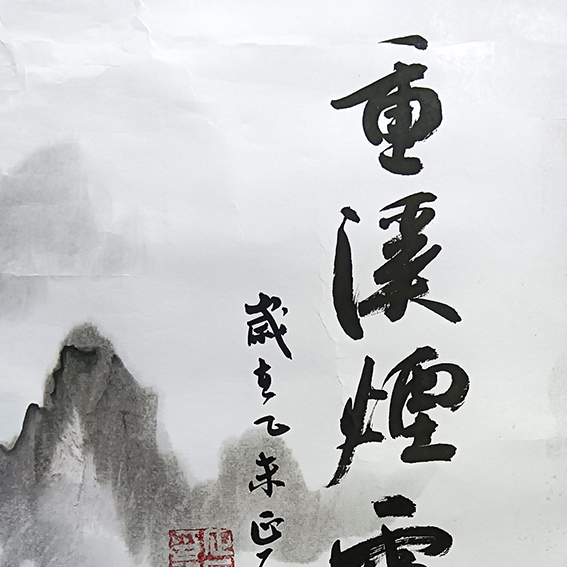 重溪煙雲
歲在乙未正